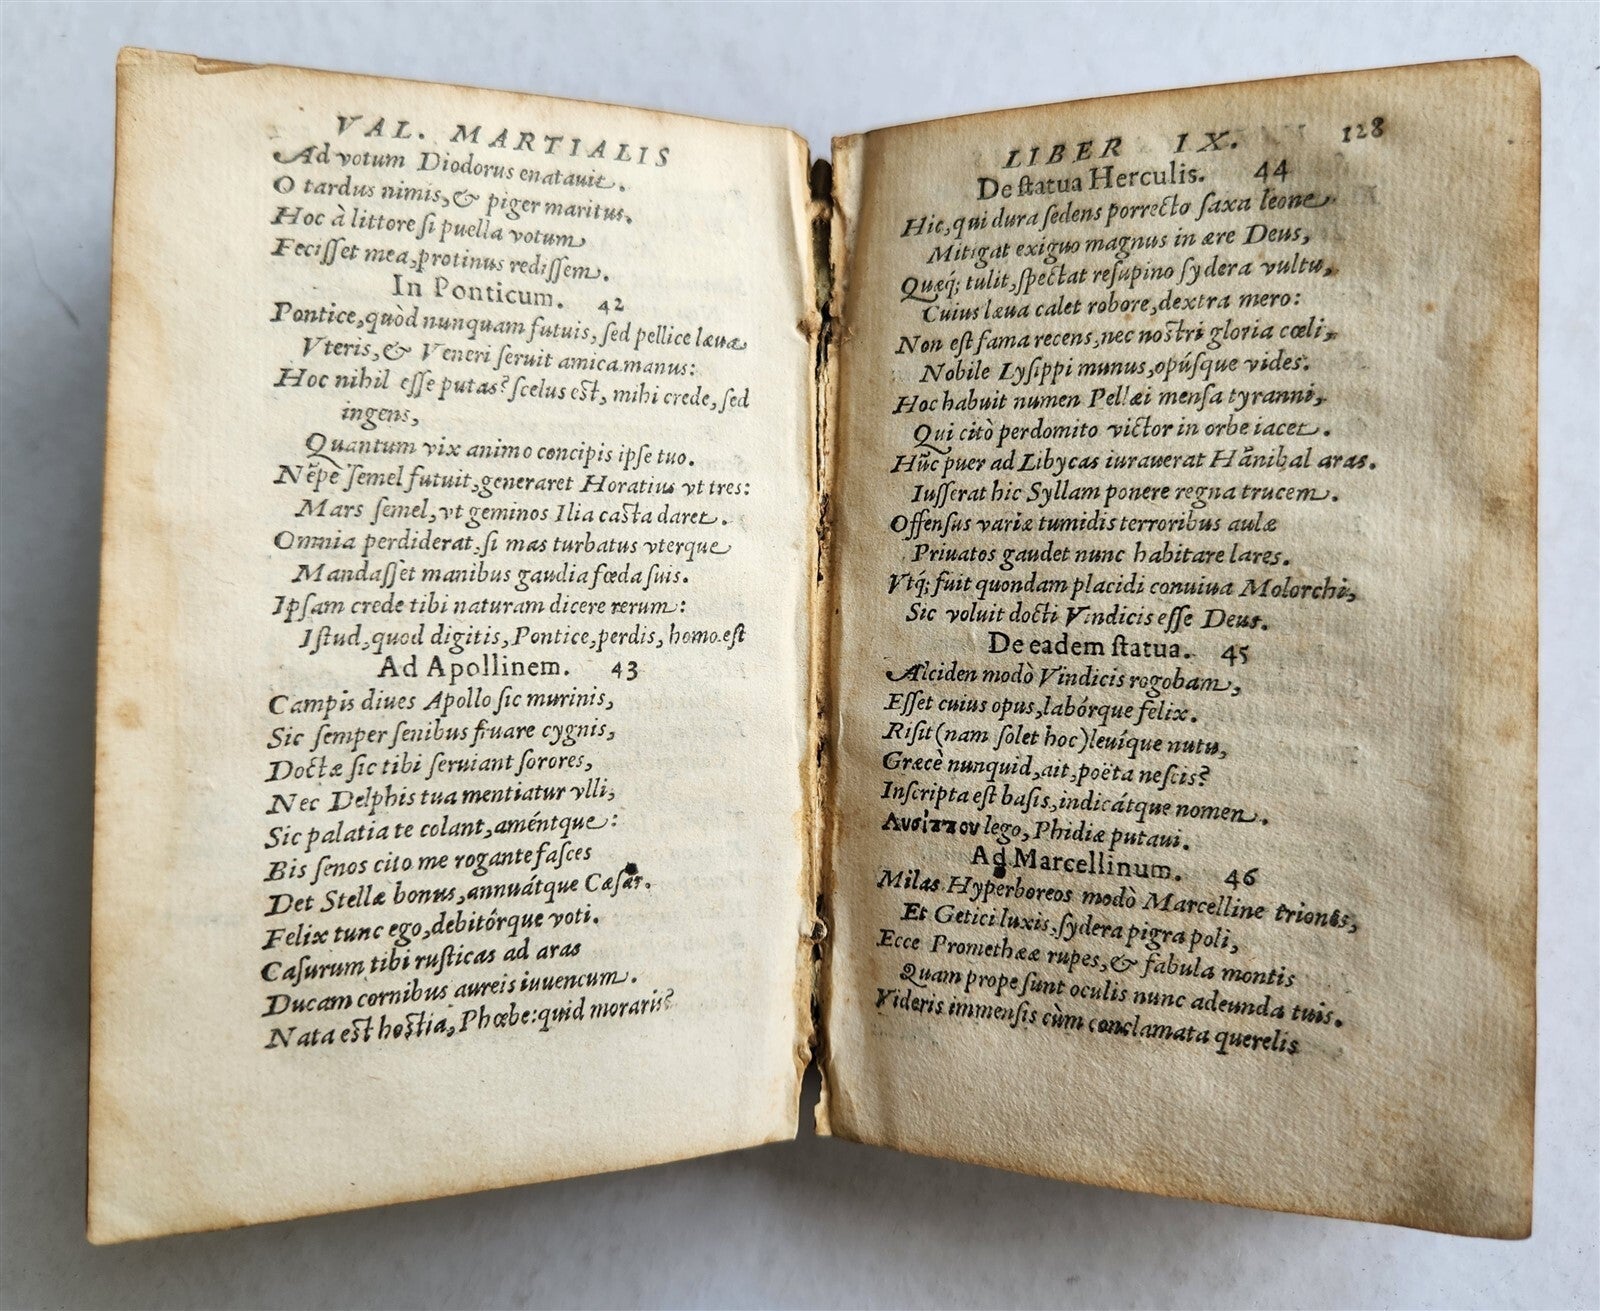 VAL. MARTIALIS
Ad votum Diodorus enatauit.
O tardus nimis, & piger maritus.
Hoc à littore ſi puella votum
Feciſſet mea, protinus rediſſem.
In Ponticum. 42
Pontice, quòd nunquam futuis, ſed pellice læua
Vteris, & Veneri ſeruit amica manus:
Hoc nihil eſſe putas? ſcelus est, mihi crede, ſed
ingens,
Quantum vix animo concipis ipſe tuo.
Nẽpè ſemel futuit, generaret Horatius vt tres:
Mars ſemel, vt geminos Ilia casta daret.
Omnia perdiderat, ſi mas turbatus vterque
Mandaſſet manibus gaudia fœda ſuis.
Ipſam crede tibi naturam dicere rerum:
Iſtud, quod digitis, Pontice, perdis, homo eſt
Ad Apollinem. 43
Campis diues Apollo ſic murinis,
Sic ſemper ſenibus fruare cygnis,
Doctæ ſic tibi ſeruiant ſorores,
Nec Delphis tua mentiatur vlli,
Sic palatia te colant, améntque:
Bis ſenos cito me rogante faſces
Det Stellæ bonus, annuátque Cæſar.
Felix tunc ego, debitórque voti.
Caſurum tibi ruſticas ad aras
Ducam cornibus aureis iuuencum.
Nata est hostia, Phœbe: quid moraris?
LIBER IX. 128
De ſtatua Herculis. 44
Hic, qui dura ſedens porrecto ſaxa leone
Mitigat exiguo magnus in ære Deus,
Quæq; tulit, ſpectat reſupino ſydera vultu,
Cuius læua calet robore, dextra mero:
Non eſt fama recens, nec nostri gloria cœli,
Nobile Lyſippi munus, opúſque vides.
Hoc habuit numen Pellæi menſa tyranni,
Qui citò perdomito victor in orbe iacet.
Hũc puer ad Libycas iurauerat Hãnibal aras.
Iuſſerat hic Syllam ponere regna trucem.
Offenſus variæ tumidis terroribus aulæ
Priuatos gaudet nunc habitare lares.
Vtq; fuit quondam placidi conuiua Molorchi,
Sic voluit docti Vindicis eſſe Deus.
De eadem ſtatua. 45
Alciden modò Vindicis rogobam,
Eſſet cuius opus, labórque felix.
Riſit (nam ſolet hoc) leuíque nutu,
Græcè nunquid, ait, poëta neſcis?
Inſcripta eſt baſis, indicátque nomen.
Λυσίππου lego, Phidiæ putaui.
Ad Marcellinum. 46
Milas Hyperboreos modò Marcelline triones,
Et Getici luxis, ſydera pigra poli,
Ecce Promethææ rupes, & fabula montis
Quam prope ſunt oculis nunc adeunda tuis.
Videris immenſis cùm conclamata querelis